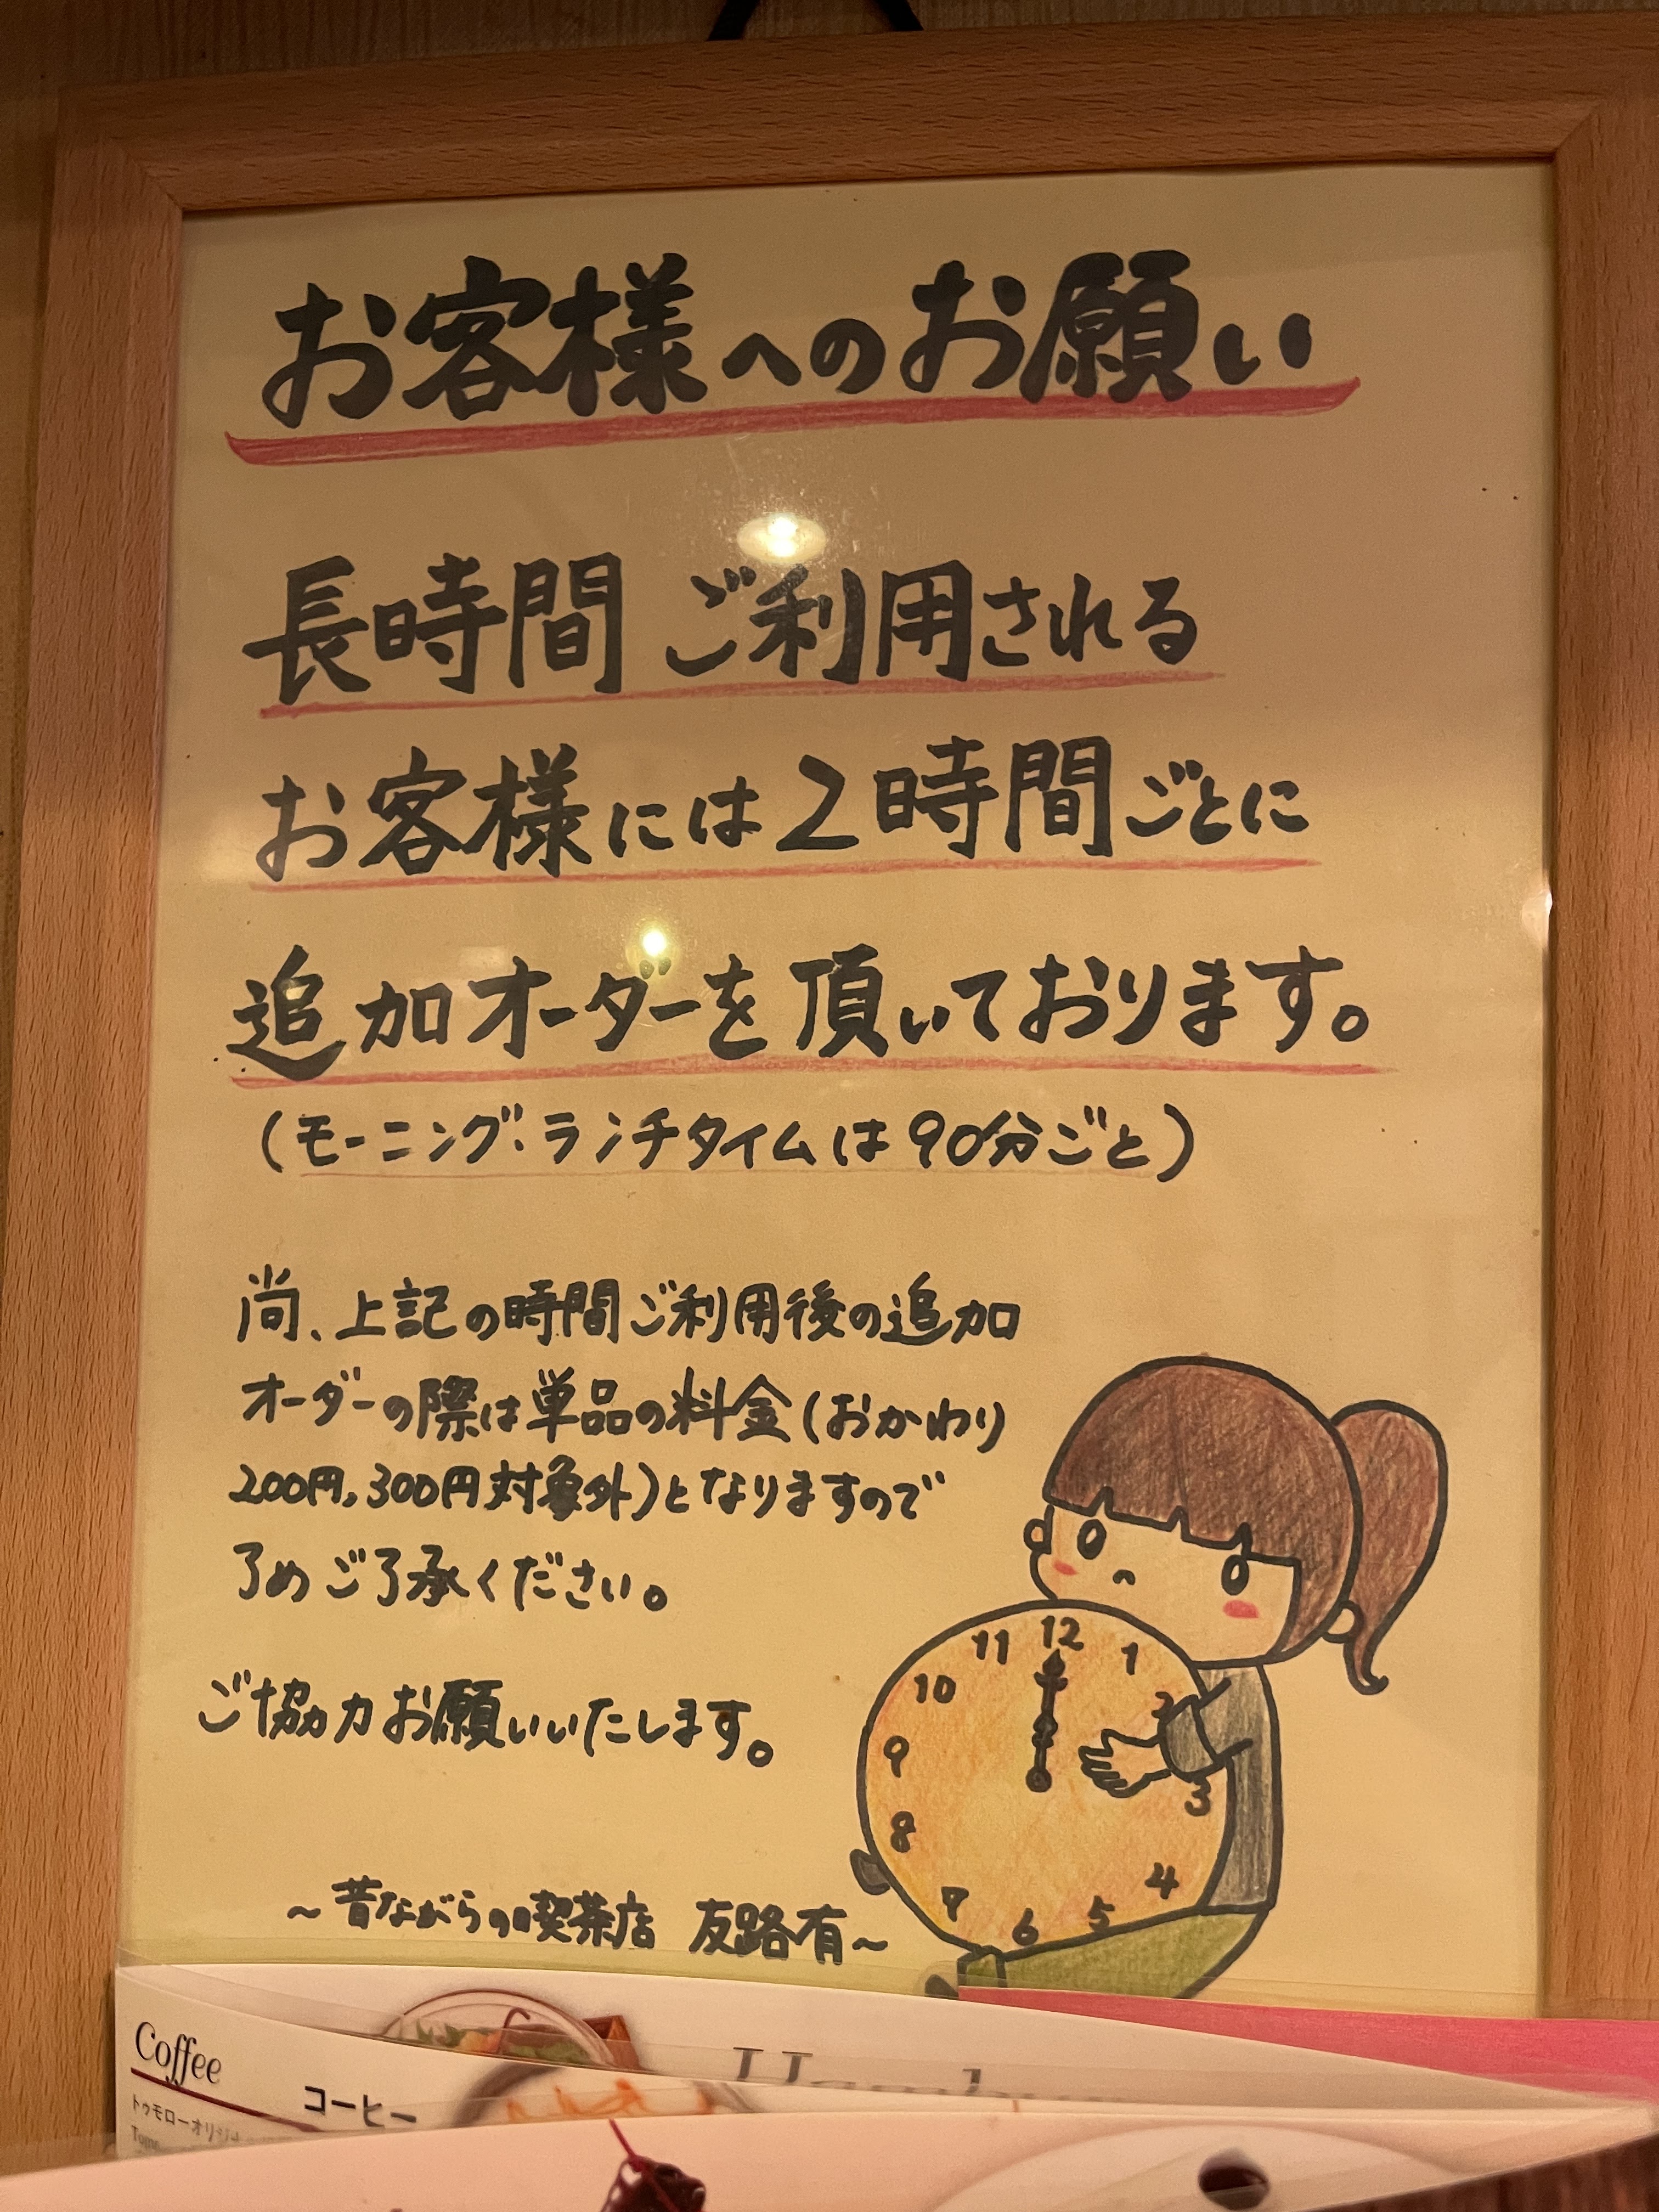 お客様へのお願い
長時間 ご利用される
お客様には2時間ごとに
追加オーダーを頂いております。
(モーニング・ランチタイムは90分ごと)
尚、上記の時間ご利用後の追加
オーダーの際は単品の料金(おかわり
200円,300円対象外)となりますので
了めご了承ください。
ご協力お願いいたします。
～昔ながらの喫茶店 友路有～
11 12 1
10 2
9 3
8 4
7 6 5
Coffee
コーヒー
トゥモローオリジナル